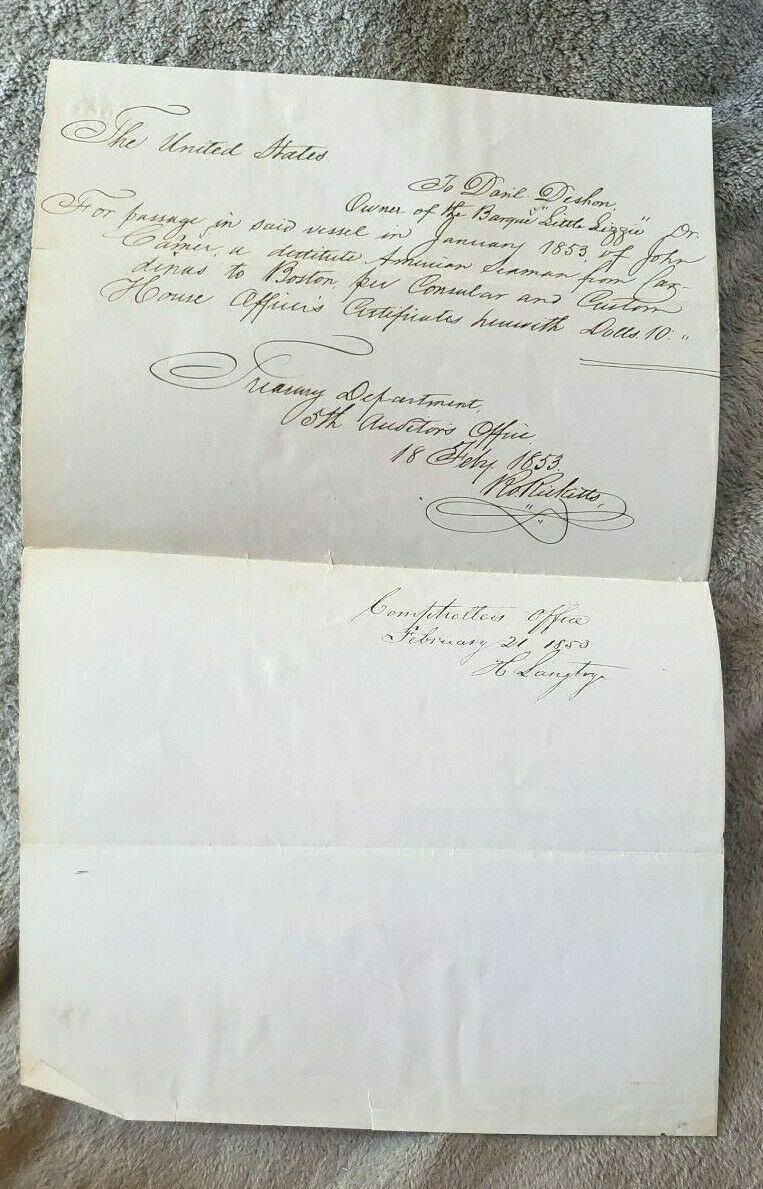 The United States.
To Danl. Deshon,
Owner of the Barque "Little Lizzie" Dr.
For passage in said vessel in January 1853, of John
a destitute American Seaman from Car-
dinas to Boston per Consular and Custom
House Officer's Certificates herewith Dolls. 10. "
Treasury Department,
5th Auditor's Office
18 Feby. 1853.
Ro Ricketts,
Comptrollers Office
February 21 1853
H